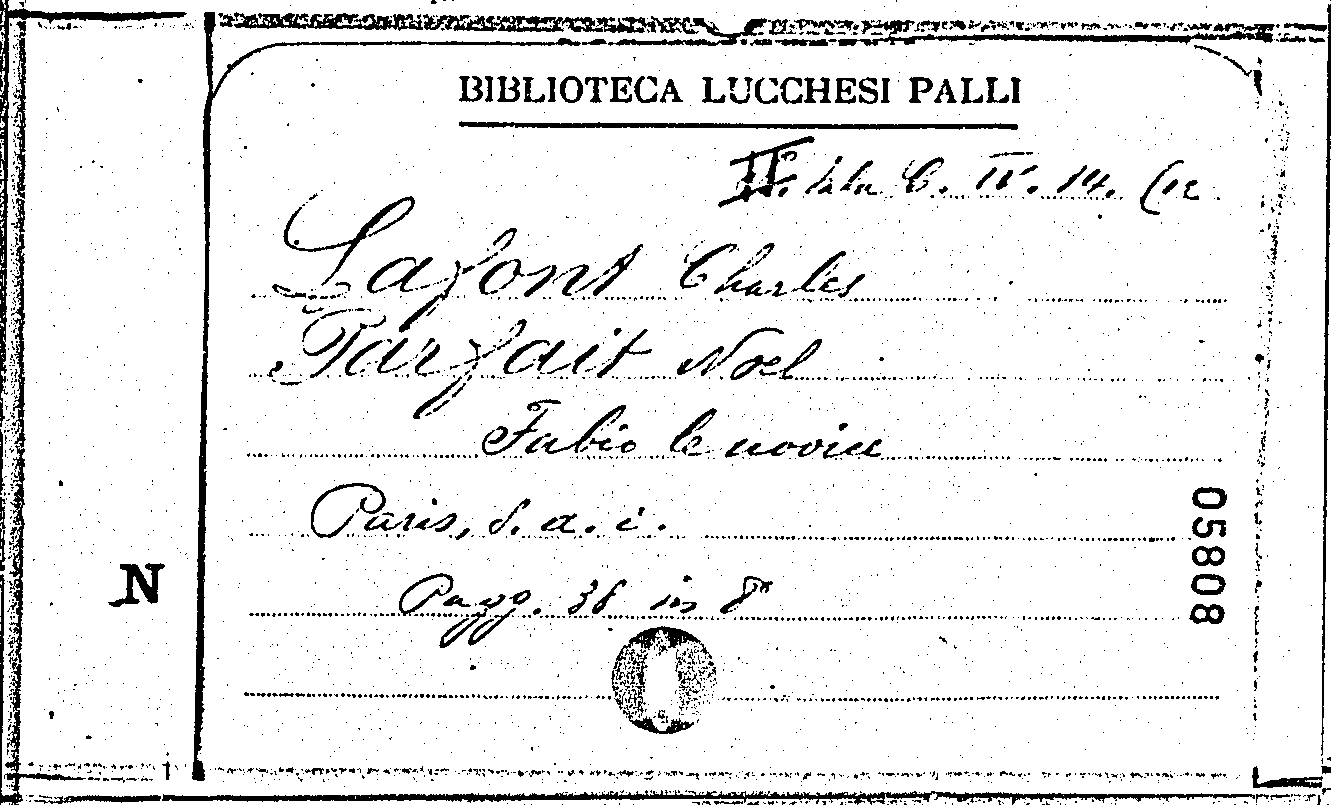 BIBLIOTECA LUCCHESI PALLI
II. Sala C. IV. 14. (12
Lafont Charles
Parfait Noel
Fabio le novice
Paris, s. a. i.
Pagg. 36 in 8°
05808
N